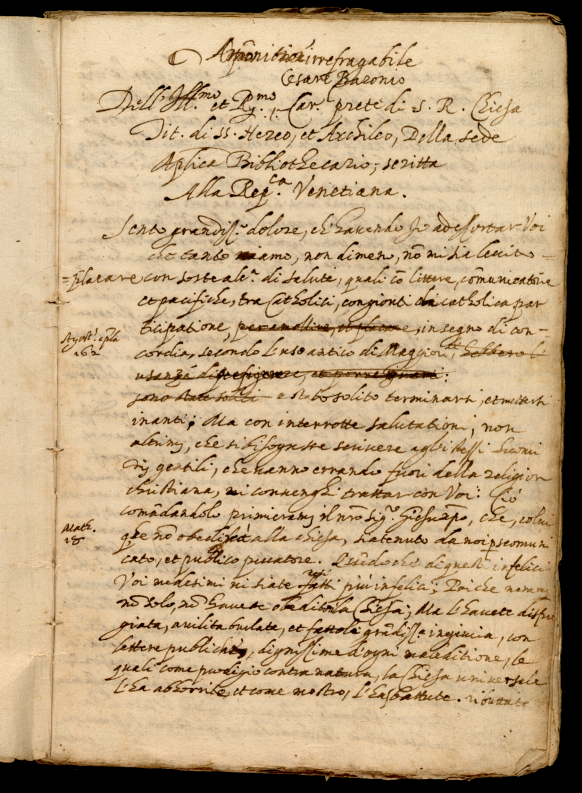 irrefragabile
Cesare Baronio
Dell' Ill.mo et R.mo Car. prete di S. R. Chiesa
Tit. di SS. Nereo, et Archileo, Della sede
Aplica Bibliothecario; scritta
Alla Rep.ca Venetiana.
Sento grandiss.o dolore, ch'havendo Io ad esfortar Voi
che tanto amo, non dimen, nõ mi ha lecito
con sorte alc.a di salute, quali cõ littere, cõmunicatorie
et pacifiche, tra Catholici, congionti catholica par
ticipatione, in segno di con-
Agost. epla
162
cordia, secondo l'uso antico di Maggiori
usanza
sono state e stato solito terminarsi, et mettersi
inanti; Ma con interrotte salutationi; non
altrim, che si bisognasse scrivere agli stessi huomi
ni gentili, che vanno errando fuori della religion
christiana, mi convenghi trattar con Voi: Ciò
comãdandolo primieram, il nrõ Sig.r Giesu xpo, che, colui
Math.
18
che nõ obedisca alla chiesa, sia tenuto da noi p scomuni
cato, et publico piccatore. Essendo che di questi infelici
Voi medesimi vi siate fatti più infelici; Poiche
nõ solo, nõ havete obedito la Chiesa; Ma l'havete disfre
giata, avilita burlata, et fattoli grãdiss.a ingiuria, con
lettere publiche, digniss.ime d'ogni maleditione, le
quali come prodigio contra natura, la chiesa universale
l'ha abhorrite, et come mostro, l'ha sbattute. ributtate